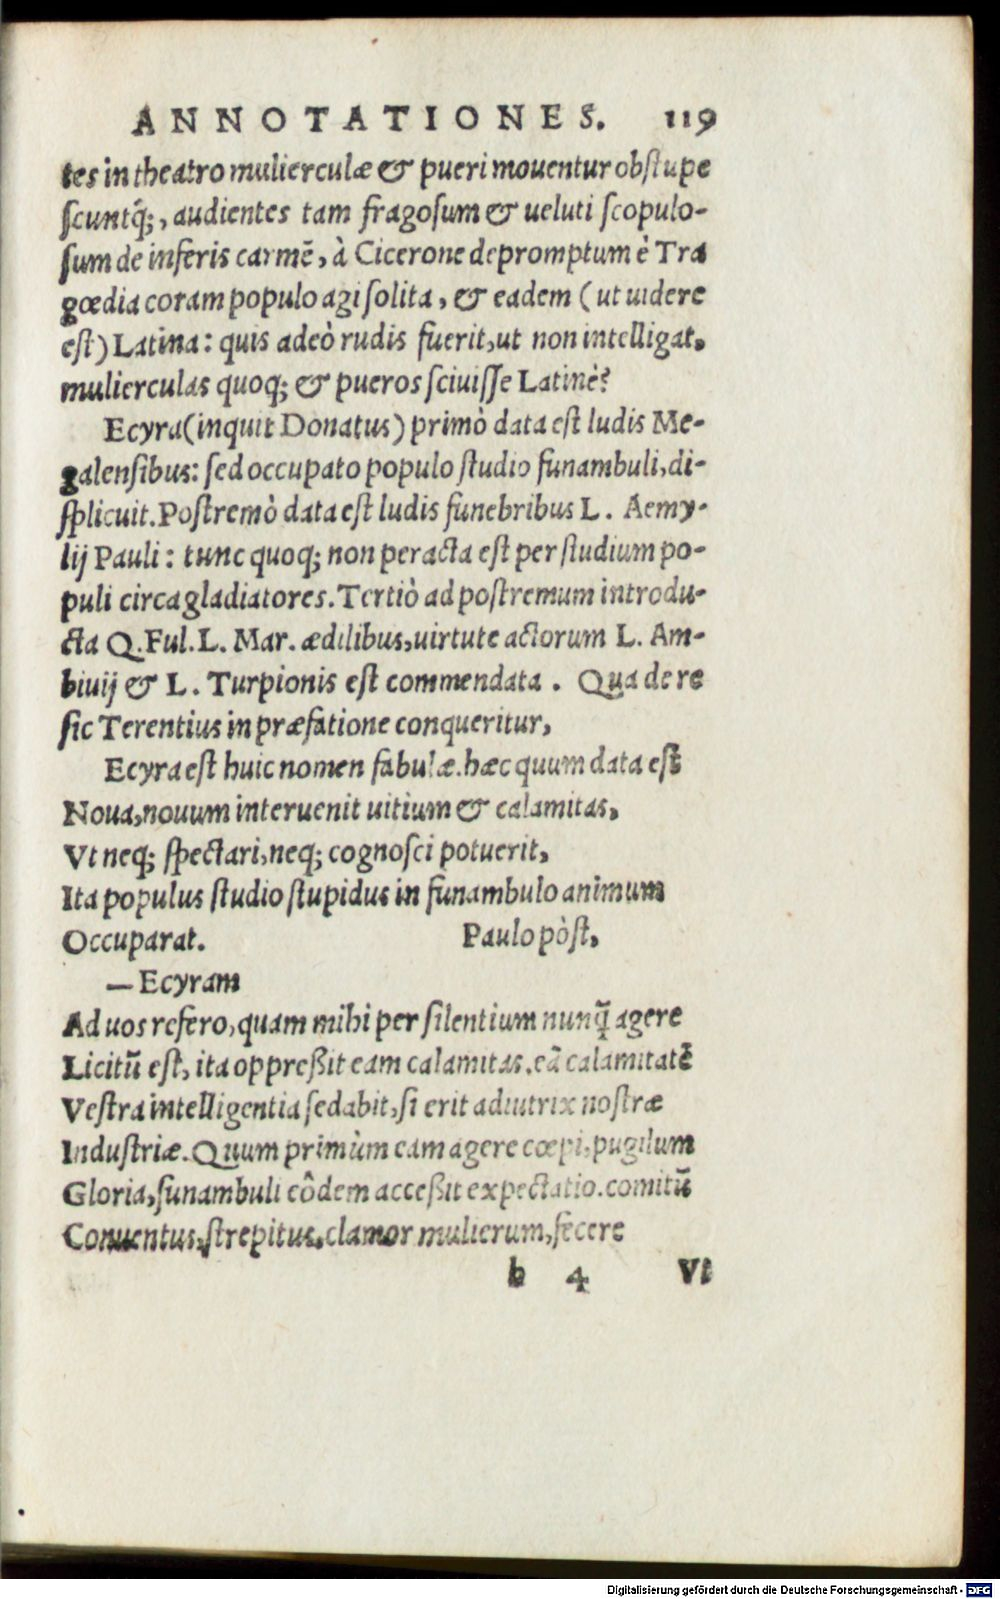 ANNOTATIONES. 119
tes in theatro mulierculæ & pueri mouentur obſtupe
ſcuntq́;, audientes tam fragoſum & ueluti ſcopulo-
ſum de inferis carmē, à Cicerone depromptum è Tra
gœdia coram populo agi ſolita, & eadem (ut uidere
eſt) Latina: quis adeò rudis fuerit, ut non intelligat,
mulierculas quoq; & pueros ſciuiſſe Latinè?
Ecyra (inquit Donatus) primò data eſt ludis Me-
galenſibus: ſed occupato populo ſtudio funambuli, di-
ſplicuit. Poſtremò data eſt ludis funebribus L. Aemy-
lij Pauli: tunc quoq; non peracta eſt per ſtudium po-
puli circa gladiatores. Tertiò ad poſtremum introdu-
cta Q. Ful. L. Mar. ædilibus, uirtute actorum L. Am-
biuij & L. Turpionis eſt commendata. Qua de re
ſic Terentius in præfatione conqueritur,
Ecyra eſt huic nomen fabulæ. hæc quum data eſt
Noua, nouum interuenit uitium & calamitas,
Vt neq; ſpectari, neq; cognoſci potuerit,
Ita populus ſtudio ſtupidus in funambulo animum
Occuparat. Paulo pòſt,
—Ecyram
Ad uos refero, quam mihi per ſilentium nunq̃ agere
Licitū eſt, ita oppreßit eam calamitas. eā calamitatē
Veſtra intelligentia ſedabit, ſi erit adiutrix noſtræ
Induſtriæ. Quum primùm eam agere cœpi, pugilum
Gloria, funambuli eôdem acceßit expectatio. comitū
Conuentus, ſtrepitus, clamor mulierum, fecere
b 4 Vt
Digitalisierung gefördert durch die Deutsche Forschungsgemeinschaft - DFG